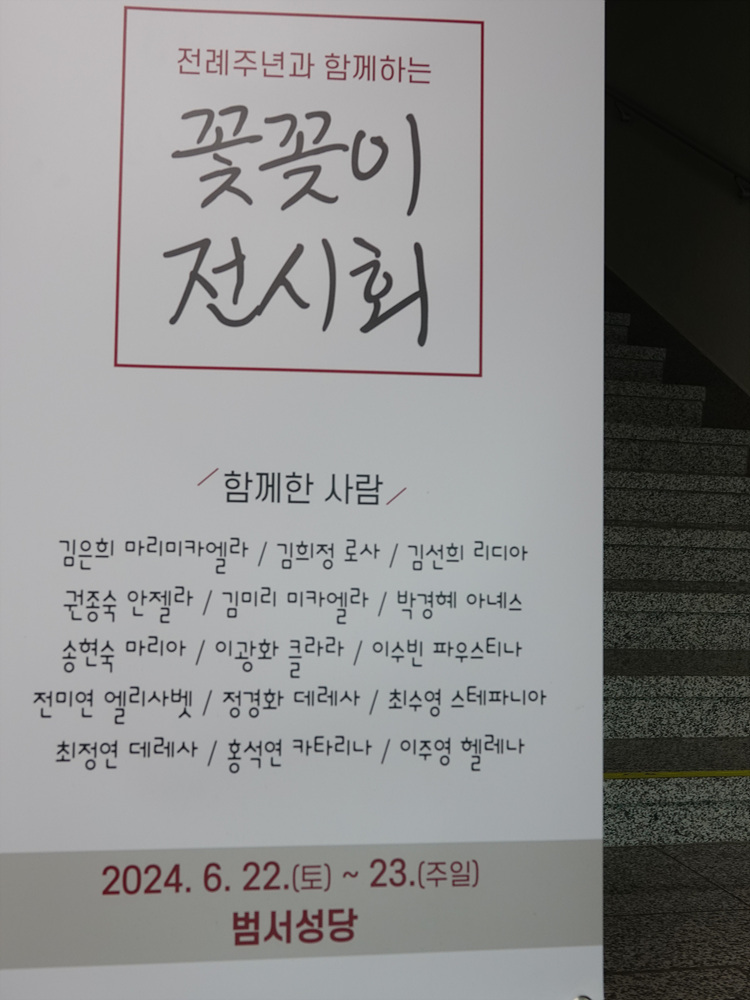 전례주년과 함께하는
꽃꽂이
전시회
함께한 사람
김은희 마리미카엘라 / 김희정 로사 / 김선희 리디아
권종숙 안젤라 / 김미리 미카엘라 / 박경혜 아녜스
송현숙 마리아 / 이광화 클라라 / 이수빈 파우스티나
전미연 엘리사벳 / 정경화 데레사 / 최수영 스테파니아
최정연 데레사 / 홍석연 카타리나 / 이주영 헬레나
2024. 6. 22.(토) ~ 23.(주일)
범서성당